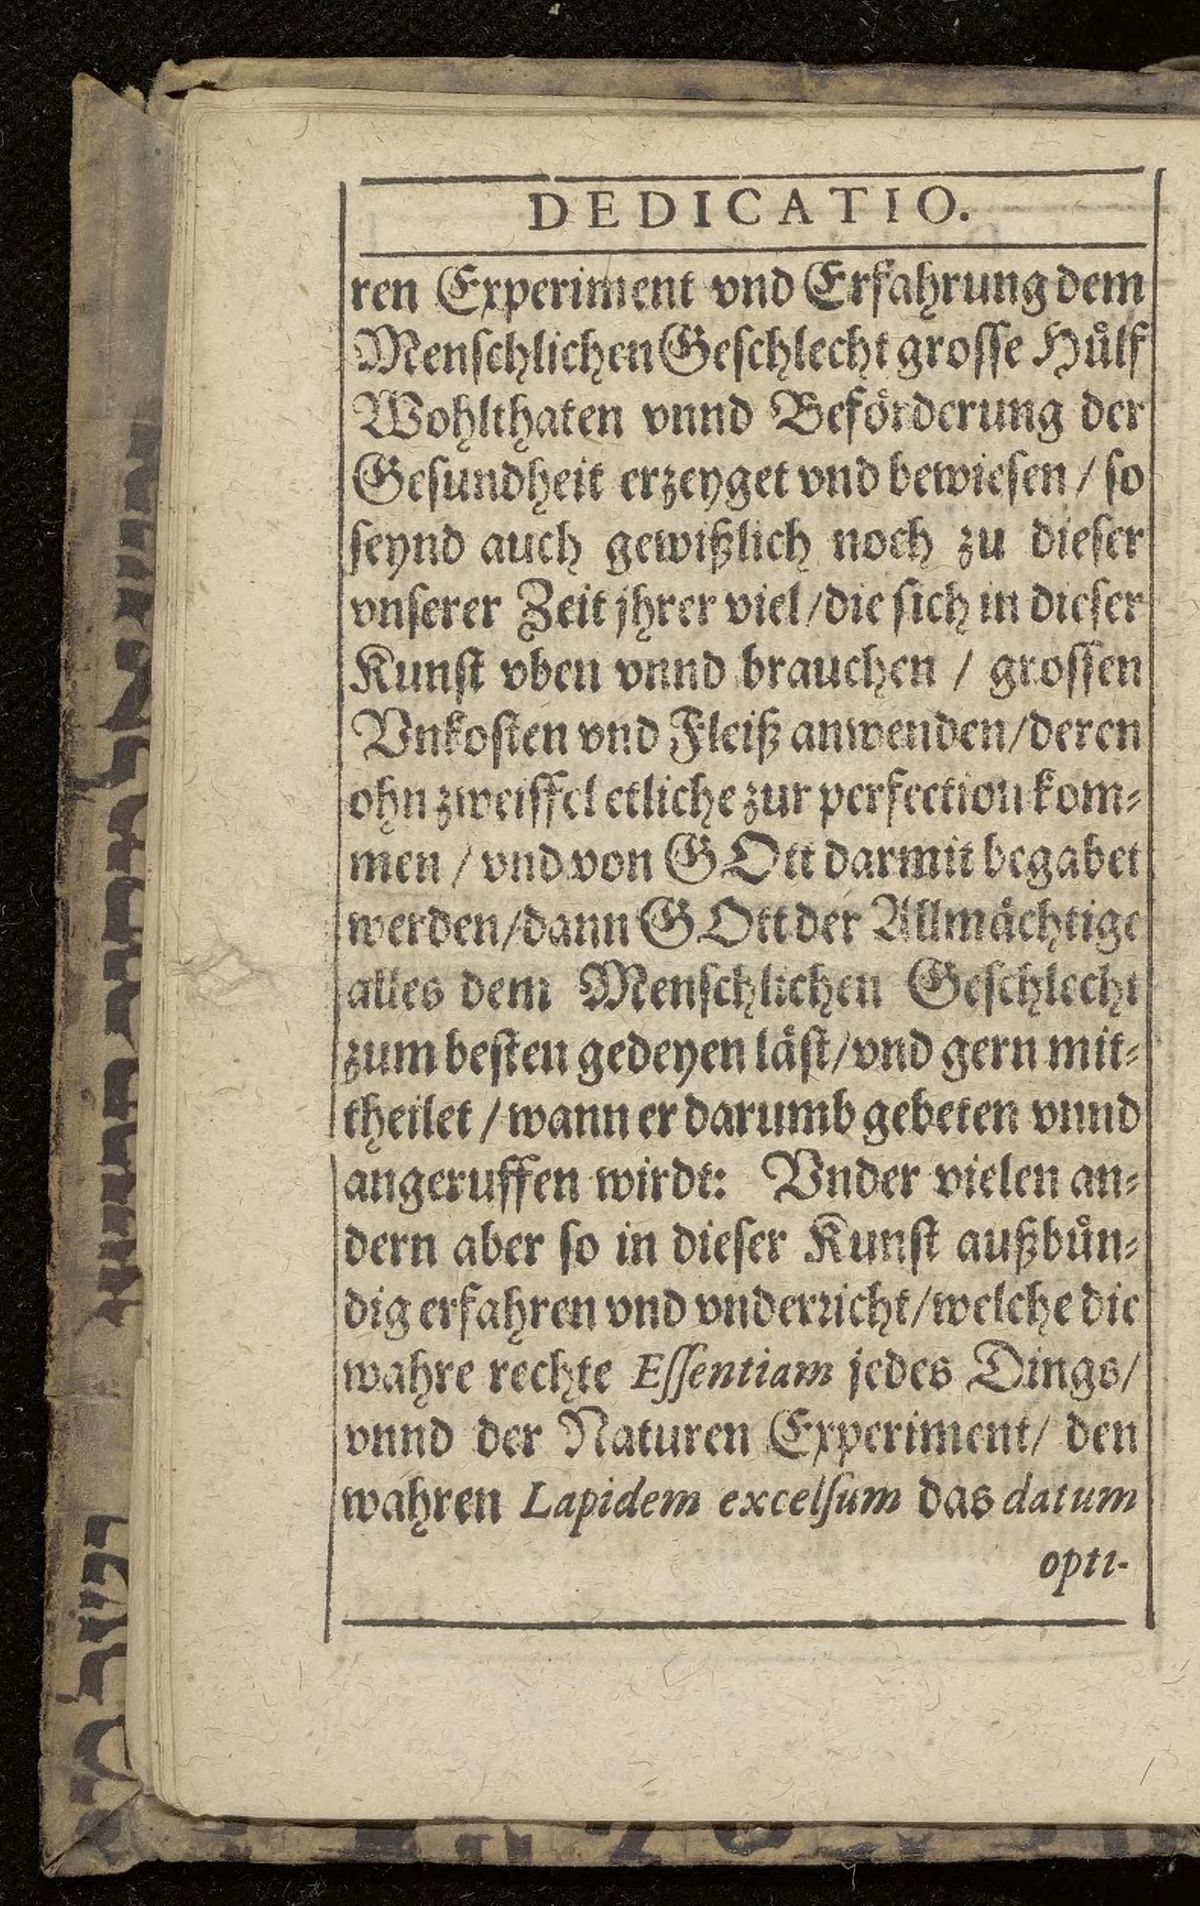 DEDICATIO.
ren Experiment vnd Erfahrung dem
Menschlichen Geschlecht grosse Hůlf
Wohlthaten vnnd Beförderung der
Gesundheit erzeyget vnd bewiesen / so
seynd auch gewißlich noch zu dieser
vnserer Zeit jhrer viel / die sich in dieser
Kunst vben vnnd brauchen / grossen
Vnkosten vnd Fleiß anwenden / deren
ohn zweiffel etliche zur perfection kom⸗
men / vnd von GOtt darmit begabet
werden / dann GOtt der Allmächtige
alles dem Menschlichen Geschlecht
zum besten gedeyen läst / vnd gern mit⸗
theilet / wann er darumb gebeten vnnd
angeruffen wirdt: Vnder vielen an⸗
dern aber so in dieser Kunst außbůn⸗
dig erfahren vnd vnderricht / welche die
wahre rechte Essentiam jedes Dings /
vnnd der Naturen Experiment / den
wahren Lapidem excelsum das datum
opti-